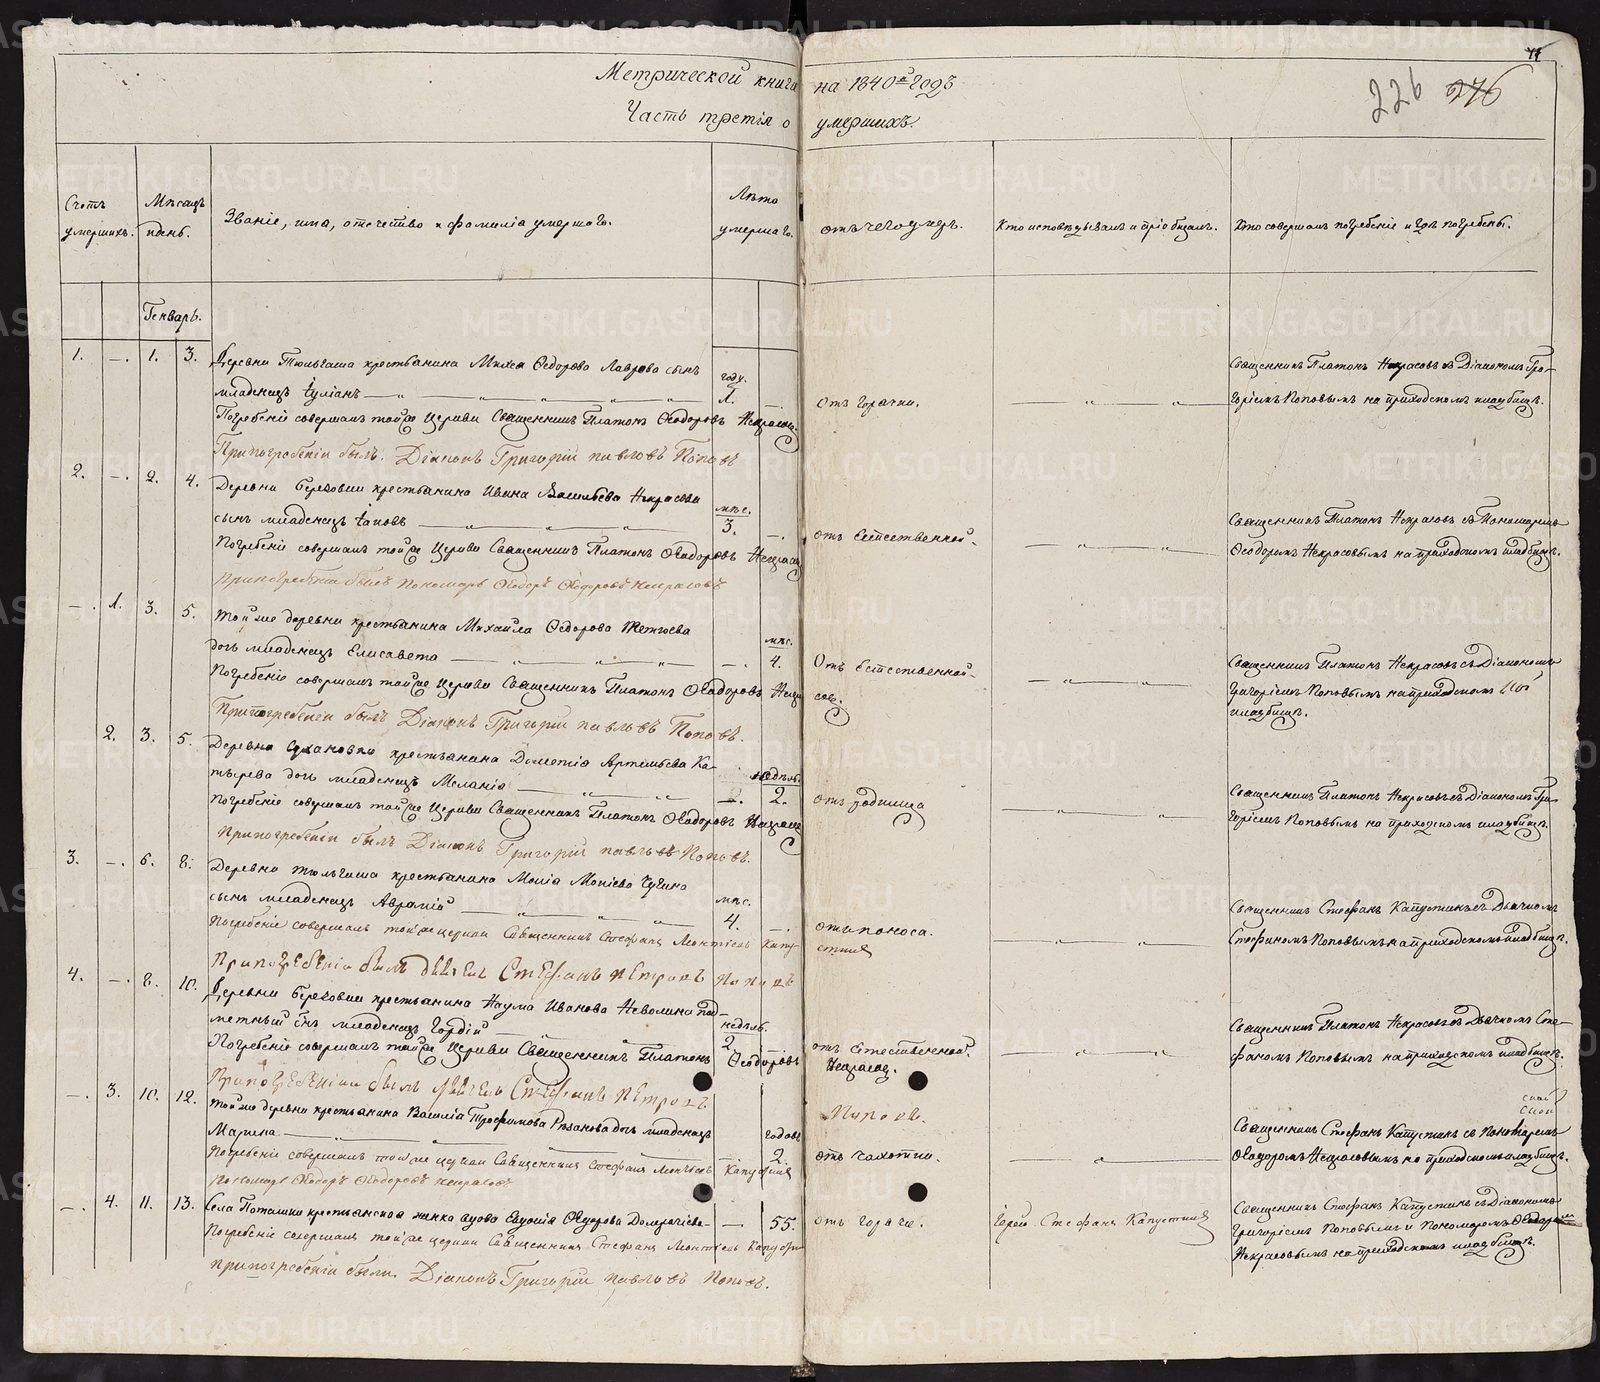 Метрической книги на 1840й годъ
Часть третія о умершихъ.
226 276
Счетъ умершихъ.
Мѣсяцъ и день.
Званіе, имя, отечество и фамилія умершаго.
Лѣта умершаго.
отъ чего умеръ.
Кто исповѣдывалъ и пріобщалъ.
Кто совершалъ погребеніе и гдѣ погребены.
Генварь.
1. —. 1. 3. Деревни Тюльгаша крестьянина Ѳедорова Лаврова сынъ
году.
младенецъ Іуліанъ 1.
отъ горячки.
Священникъ Платонъ Некрасовъ съ Діакономъ Гри-
горіемъ Поповымъ на приходскомъ кладбищѣ.
Погребеніе совершалъ той же Церкви Священникъ Платонъ Ѳеодоровъ Некрасовъ
При погребеніи былъ: Діаконъ Григорій павловъ Поповъ
2. —. 2. 4. Деревни Березовки крестьянина Ивана Васильева Некрасова
мѣс.
сынъ младенецъ Іаковъ 3.
отъ Естественной.
Священникъ Платонъ Некрасовъ съ Пономаремъ
Ѳеодоромъ Некрасовымъ на приходскомъ кладбищѣ.
Погребеніе совершалъ той же Церкви Священникъ Платонъ Ѳеодоровъ Некрасовъ
При погребеніи былъ Пономарь Ѳеодоръ Ѳедоровъ Некрасовъ
—. 1. 3. 5. Той же деревни крестьянина Михайла Ѳедорова
мѣс.
дочь младенецъ Елисавета —. 4.
Отъ Естественной.
Священникъ Платонъ Некрасовъ съ Діакономъ
Григоріемъ Поповымъ на приходскомъ
кладбищѣ.
Погребеніе совершалъ той же Церкви Священникъ Платонъ Ѳеодоровъ Некра
совъ.
При погребеніи былъ Діаконъ Григорій павловъ Поповъ.
2. 3. 5. Деревни Сухановки крестьянина Дометія Артемьева Ка-
недѣль.
тырева дочь младенецъ Меланія —. 2.
отъ родимца
Священникъ Платонъ Некрасовъ съ Діакономъ Гри-
горіемъ Поповымъ на приходскомъ кладбищѣ.
Погребеніе совершалъ той же Церкви Священникъ Платонъ Ѳеодоровъ Некрасовъ
При погребеніи былъ Діаконъ Григорій павловъ Поповъ.
3. —. 6. 8. Деревни Тюльгаша крестьянина Чугина
мѣс.
сынъ младенецъ Аврамій 4. —.
отъ поноса.
Священникъ Стефанъ Капустинъ съ Дьячкомъ
Стефаномъ Поповымъ на приходскомъ кладбищѣ.
Погребеніе совершалъ той же церкви Священникъ Стефанъ Капу-
стинъ
При погребеніи былъ Стефанъ Петровъ Поповъ
4. —. 8. 10. Деревни Березовки крестьянина Наума Иванова Неволина
недѣль.
младенецъ Гордій 2.
отъ Естественной.
Священникъ Платонъ Некрасовъ съ Дьячкомъ Сте-
фаномъ Поповымъ на приходскомъ кладбищѣ.
Погребеніе совершалъ той же Церкви Священникъ Платонъ Ѳеодоровъ
Некрасовъ.
При погребеніи былъ Стефанъ Петровъ
Поповъ.
—. 3. 10. 12. Той же деревни крестьянина Василія Трофимова Рязанова дочь младенецъ
годовъ
Марина 2.
отъ чахотки.
Священникъ Стефанъ Капустинъ съ Пономаремъ
Ѳеодоромъ Некрасовымъ на приходскомъ кладбищѣ.
Погребеніе совершалъ той же церкви Священникъ Стефанъ Капустинъ
пономарь Ѳеодоръ Ѳеодоровъ Некрасовъ
—. 4. 11. 13. Села Поташки крестьянская женка вдова Евдокія Ѳедорова — 55.
отъ горячки.
Іерей Стефанъ Капустинъ
Священникъ Стефанъ Капустинъ съ Діакономъ
Григоріемъ Поповымъ и Пономаремъ Ѳеодоромъ
Некрасовымъ на приходскомъ кладбищѣ.
Погребеніе совершалъ той же церкви Священникъ Стефанъ Капустин
при погребеніи были Діаконъ Григорій павловъ Поповъ.